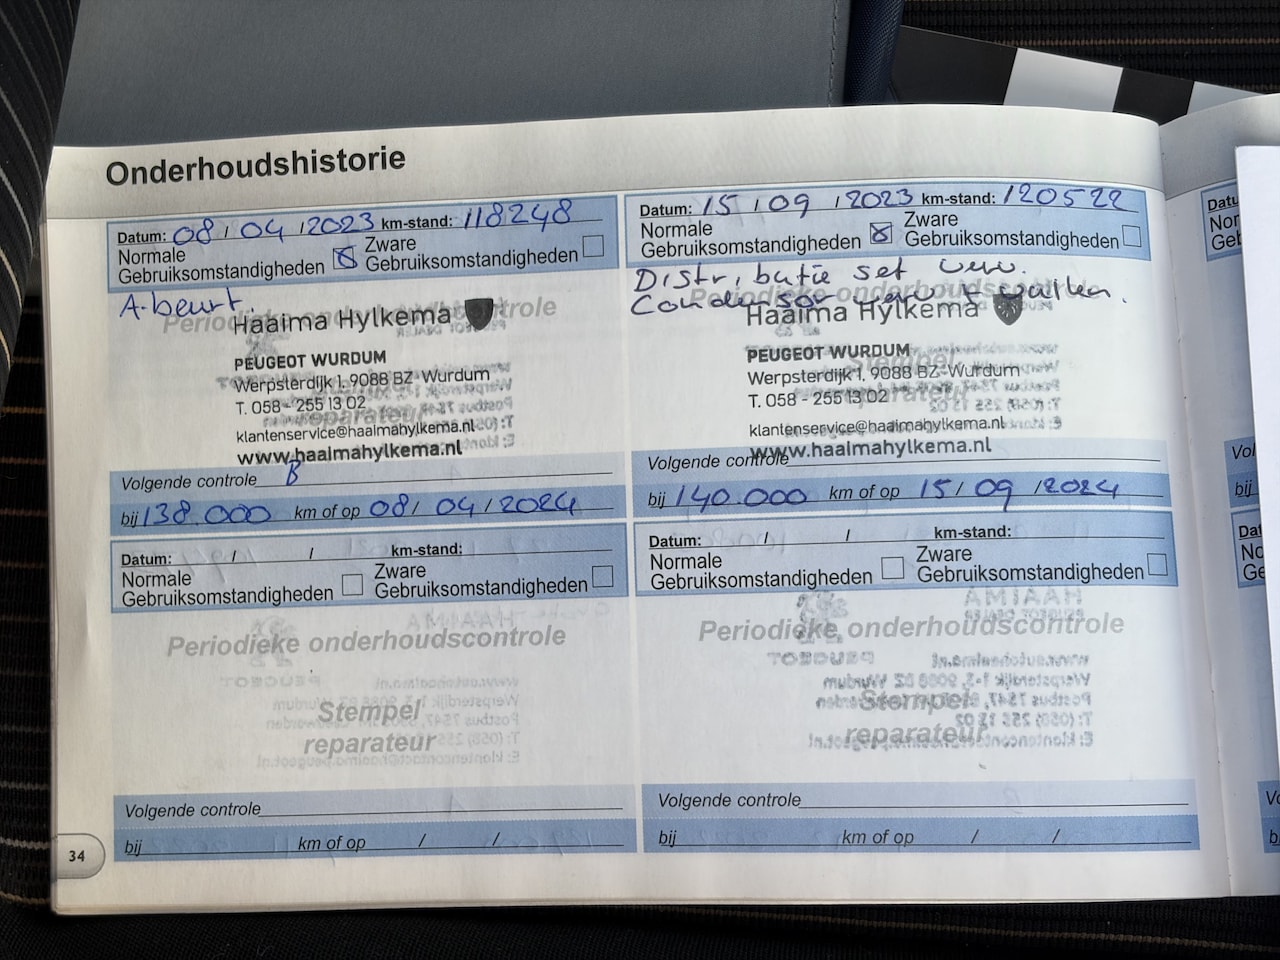 Onderhoudshistorie
Datum: 08 / 04 / 2023 km-stand: 118248
Normale Gebruiksomstandigheden
Zware Gebruiksomstandigheden
A-beurt
Periodieke onderhoudscontrole
Haaima Hylkema
PEUGEOT WURDUM
Werpsterdijk 1, 9088 BZ Wurdum
T. 058 - 255 13 02
Stempel
reparateur
klantenservice@haaimahylkema.nl
www.haaimahylkema.nl
Volgende controle B
bij 138.000 km of op 08 / 04 / 2024
Datum: 15 / 09 / 2023 km-stand: 120522
Normale Gebruiksomstandigheden
Zware Gebruiksomstandigheden
Distributie set verv.
Condensor verv + vullen.
Periodieke onderhoudscontrole
Haaima Hylkema
PEUGEOT WURDUM
Werpsterdijk 1, 9088 BZ Wurdum
T. 058 - 255 13 02
Stempel
reparateur
klantenservice@haaimahylkema.nl
www.haaimahylkema.nl
Volgende controle
bij 140.000 km of op 15 / 09 / 2024
Datum: / / km-stand:
Normale Gebruiksomstandigheden
Zware Gebruiksomstandigheden
Periodieke onderhoudscontrole
Stempel
reparateur
Volgende controle
bij km of op / /
Datum: / / km-stand:
Normale Gebruiksomstandigheden
Zware Gebruiksomstandigheden
Periodieke onderhoudscontrole
Stempel
reparateur
Volgende controle
bij km of op / /
34